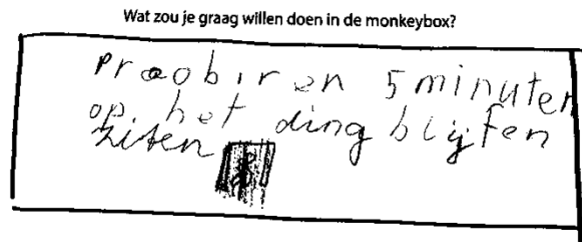 Wat zou je graag willen doen in de monkeybox?
praobiren 5 minuten
op het ding blijfen
ziten